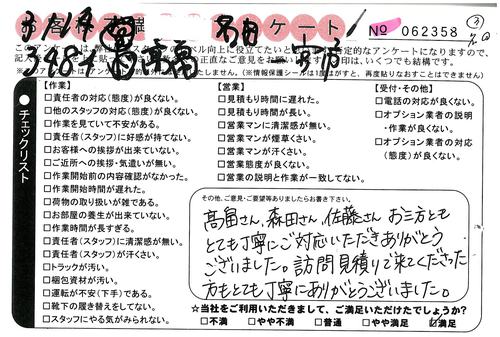 お客様 アンケート!
No 062358
【作業】
□責任者の対応(態度)が良くない。
□他のスタッフの対応(態度)が良くない。
□作業を見ていて不安がある。
□責任者(スタッフ)に好感が持てない。
□お客様への挨拶が出来ていない。
□ご近所への挨拶・気遣いが無い。
□作業開始前の内容確認がなかった。
□作業開始時間が遅れた。
□荷物の取り扱いが雑である。
□お部屋の養生が出来ていない。
□作業時間が長すぎる。
□責任者(スタッフ)に清潔感が無い。
□責任者(スタッフ)が汗くさい。
□トラックが汚い。
□梱包資材が汚い。
□運転が不安(下手)である。
□靴下の履き替えをしてない。
□スタッフにやる気がみられない。
【営業】
□見積もり時間に遅れた。
□見積もり時間が長い。
□営業マンに清潔感が無い。
□営業マンが煙草くさい。
□営業マンが汗くさい。
□営業態度が良くない。
□営業の説明と作業が一致してない。
【受付・その他】
□電話の対応が良くない。
□オプション業者の説明
・作業が良くない。
□オプション業者の対応
(態度)が良くない。
●チェックリスト
その他、ご意見・ご要望等ありましたらお書き下さい。
高畠さん、森田さん、佐藤さん お三方とも
とても丁寧にご対応いただきありがとう
ございました。訪問見積りで来てくださった
方もとても丁寧にありがとうございました。
☆当社をご利用いただきまして、ご満足いただけたでしょうか?
□不満 □やや不満 □普通 □やや満足 ☑満足